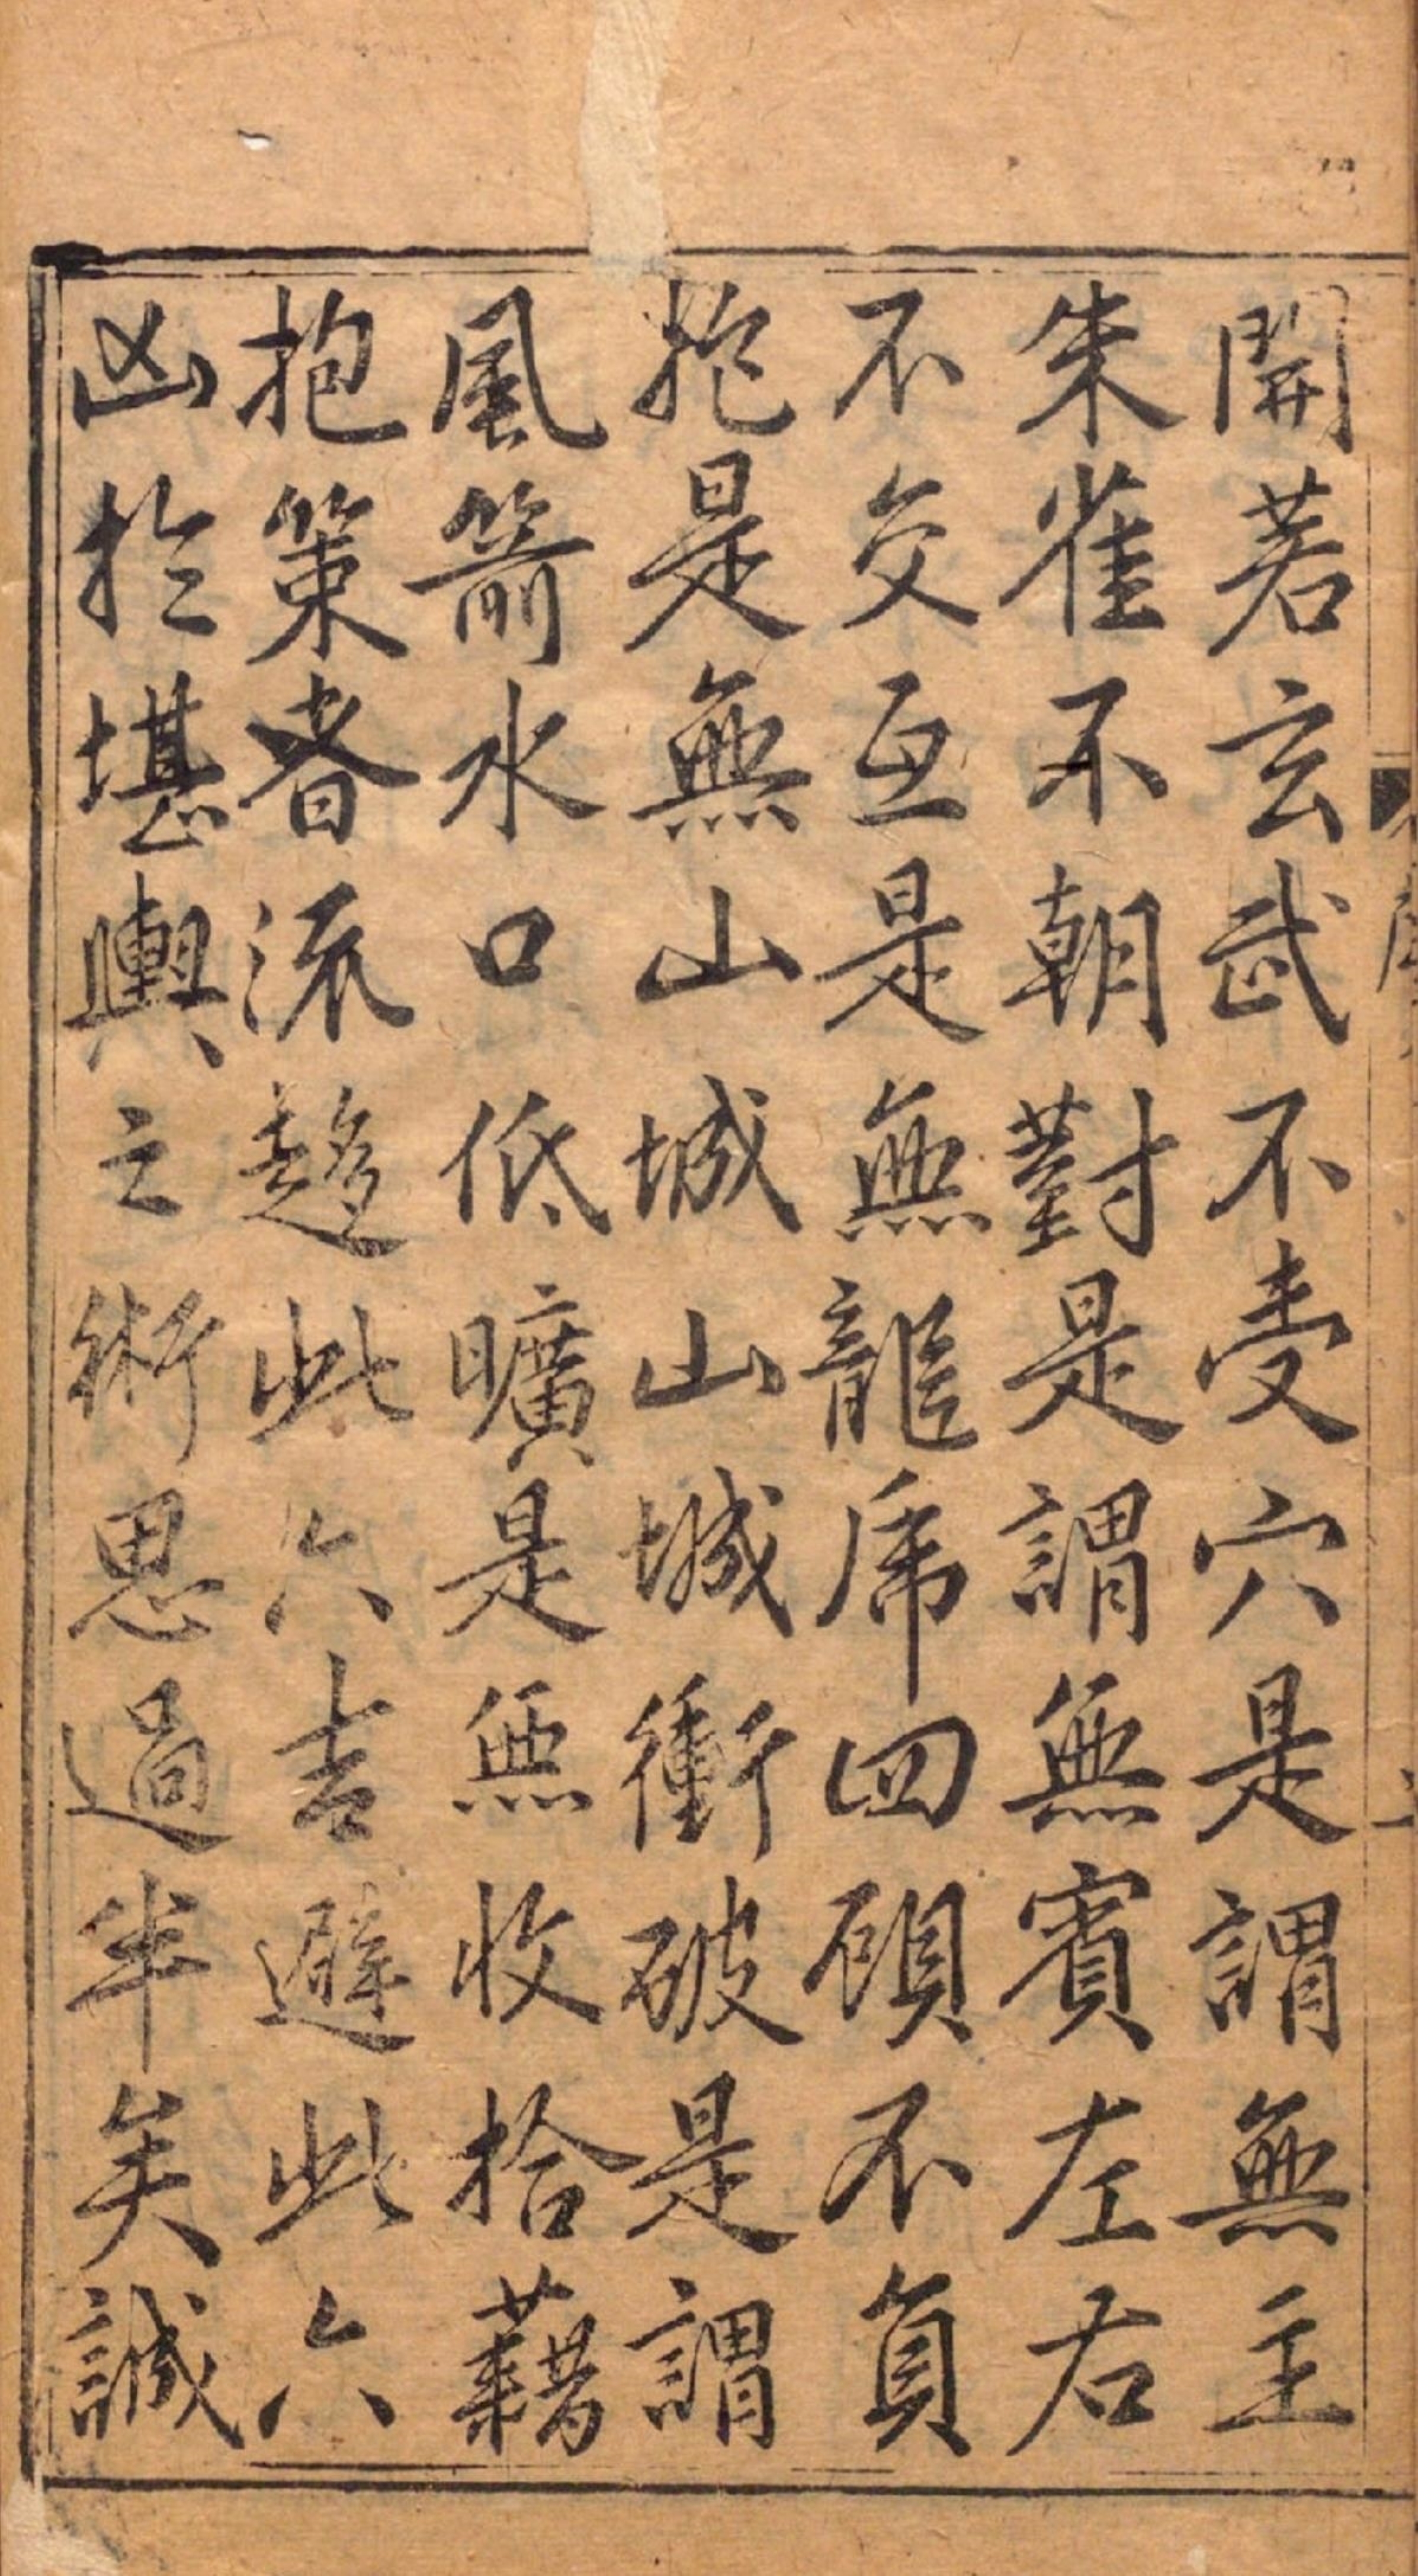 開若玄武不受穴是謂無主
朱雀不朝對是謂無賓左右
不交互是無龍虎四顧不負
抱是無山城山城衝破是謂
風箭水口低曠是無收拾藉
抱策者流趨此六吉避此六
凶於堪輿之術思過半矣誠